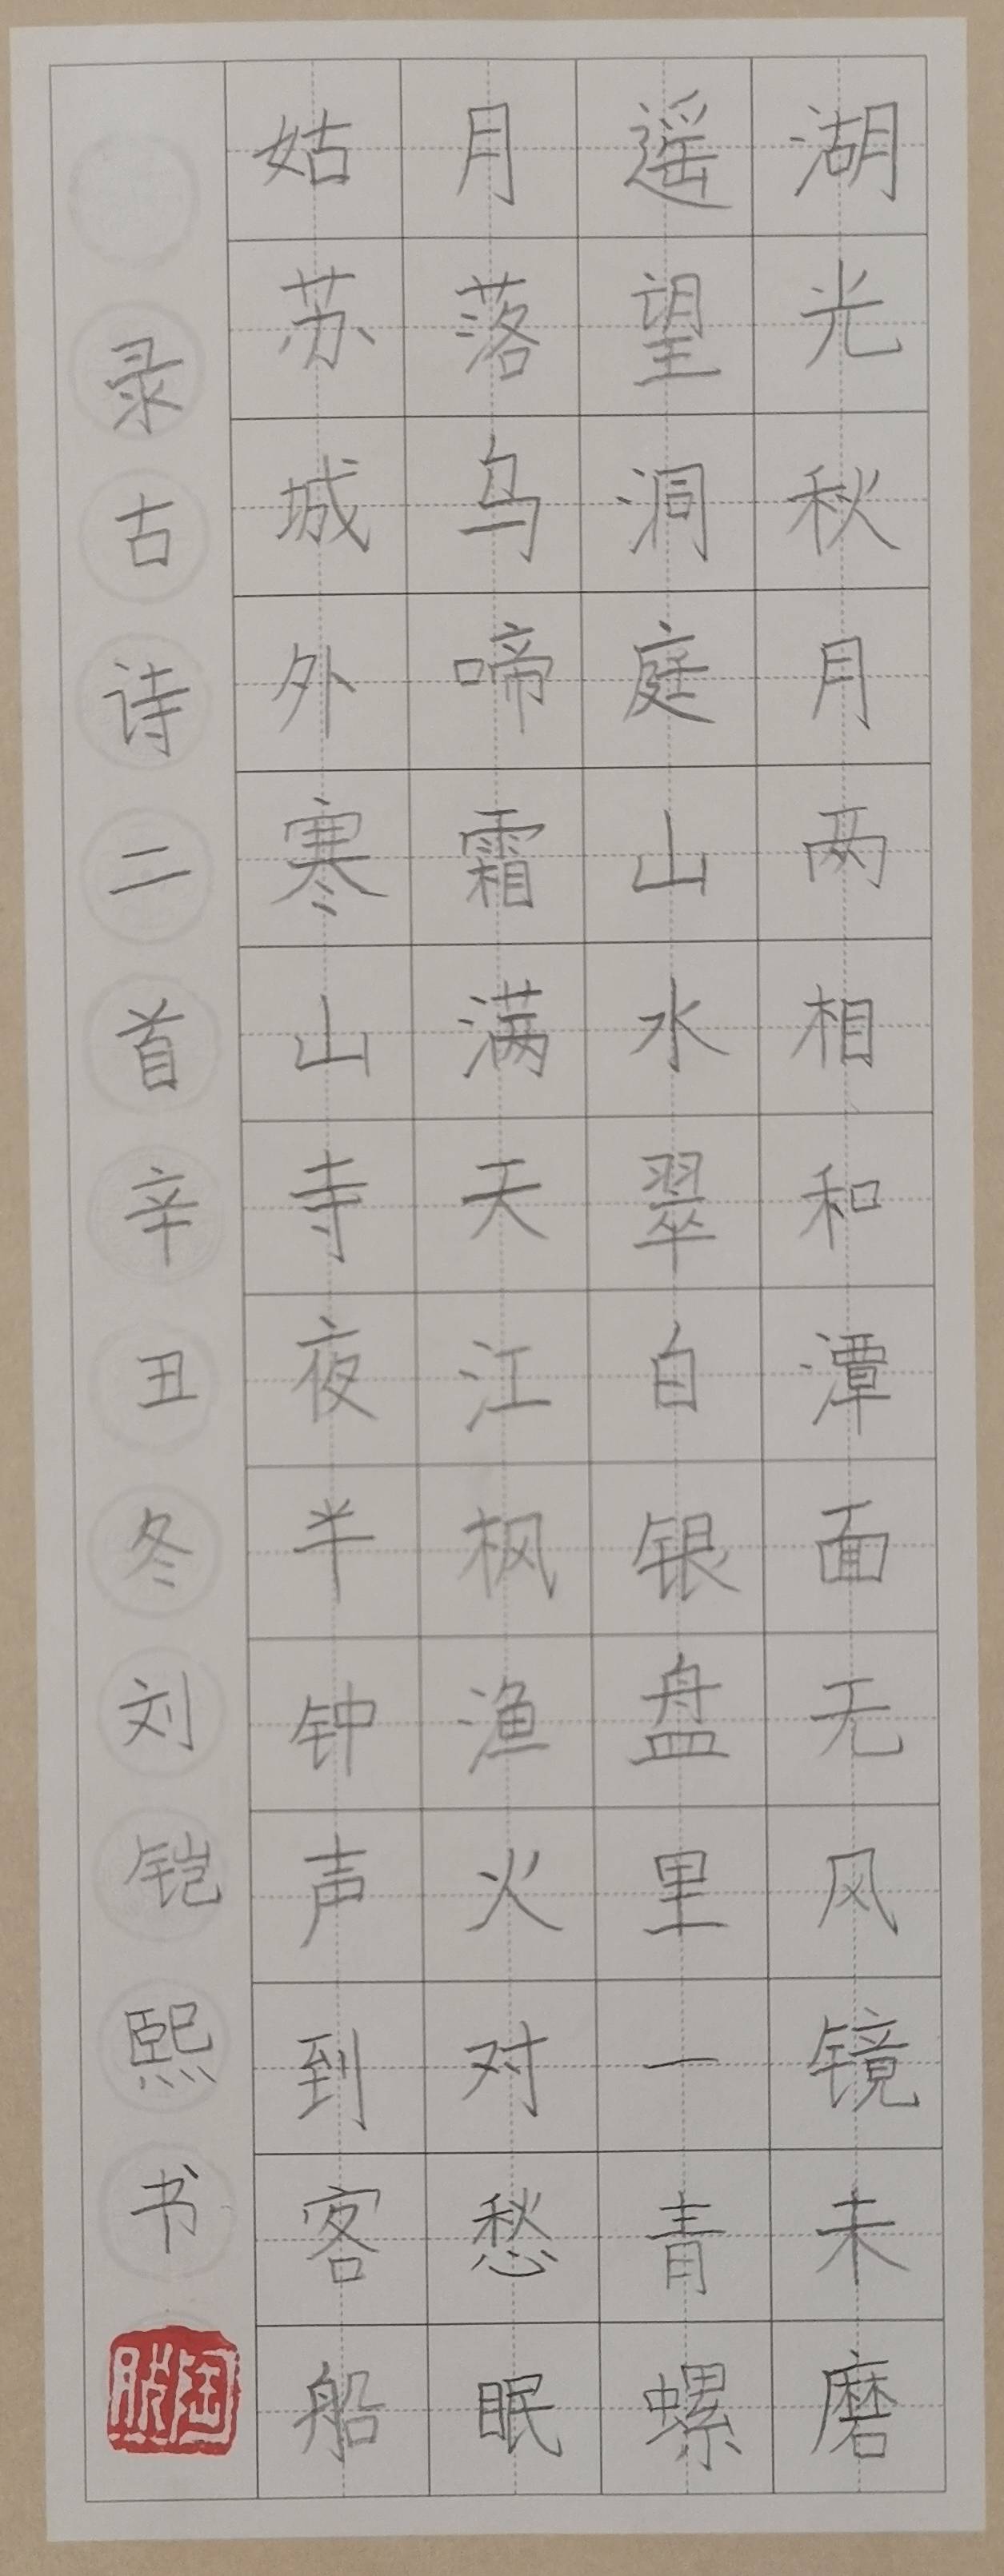 湖光秋月两相和潭面无风镜未磨
遥望洞庭山水翠白银盘里一青螺
月落乌啼霜满天江枫渔火对愁眠
姑苏城外寒山寺夜半钟声到客船
录古诗二首辛丑冬刘铠熙书